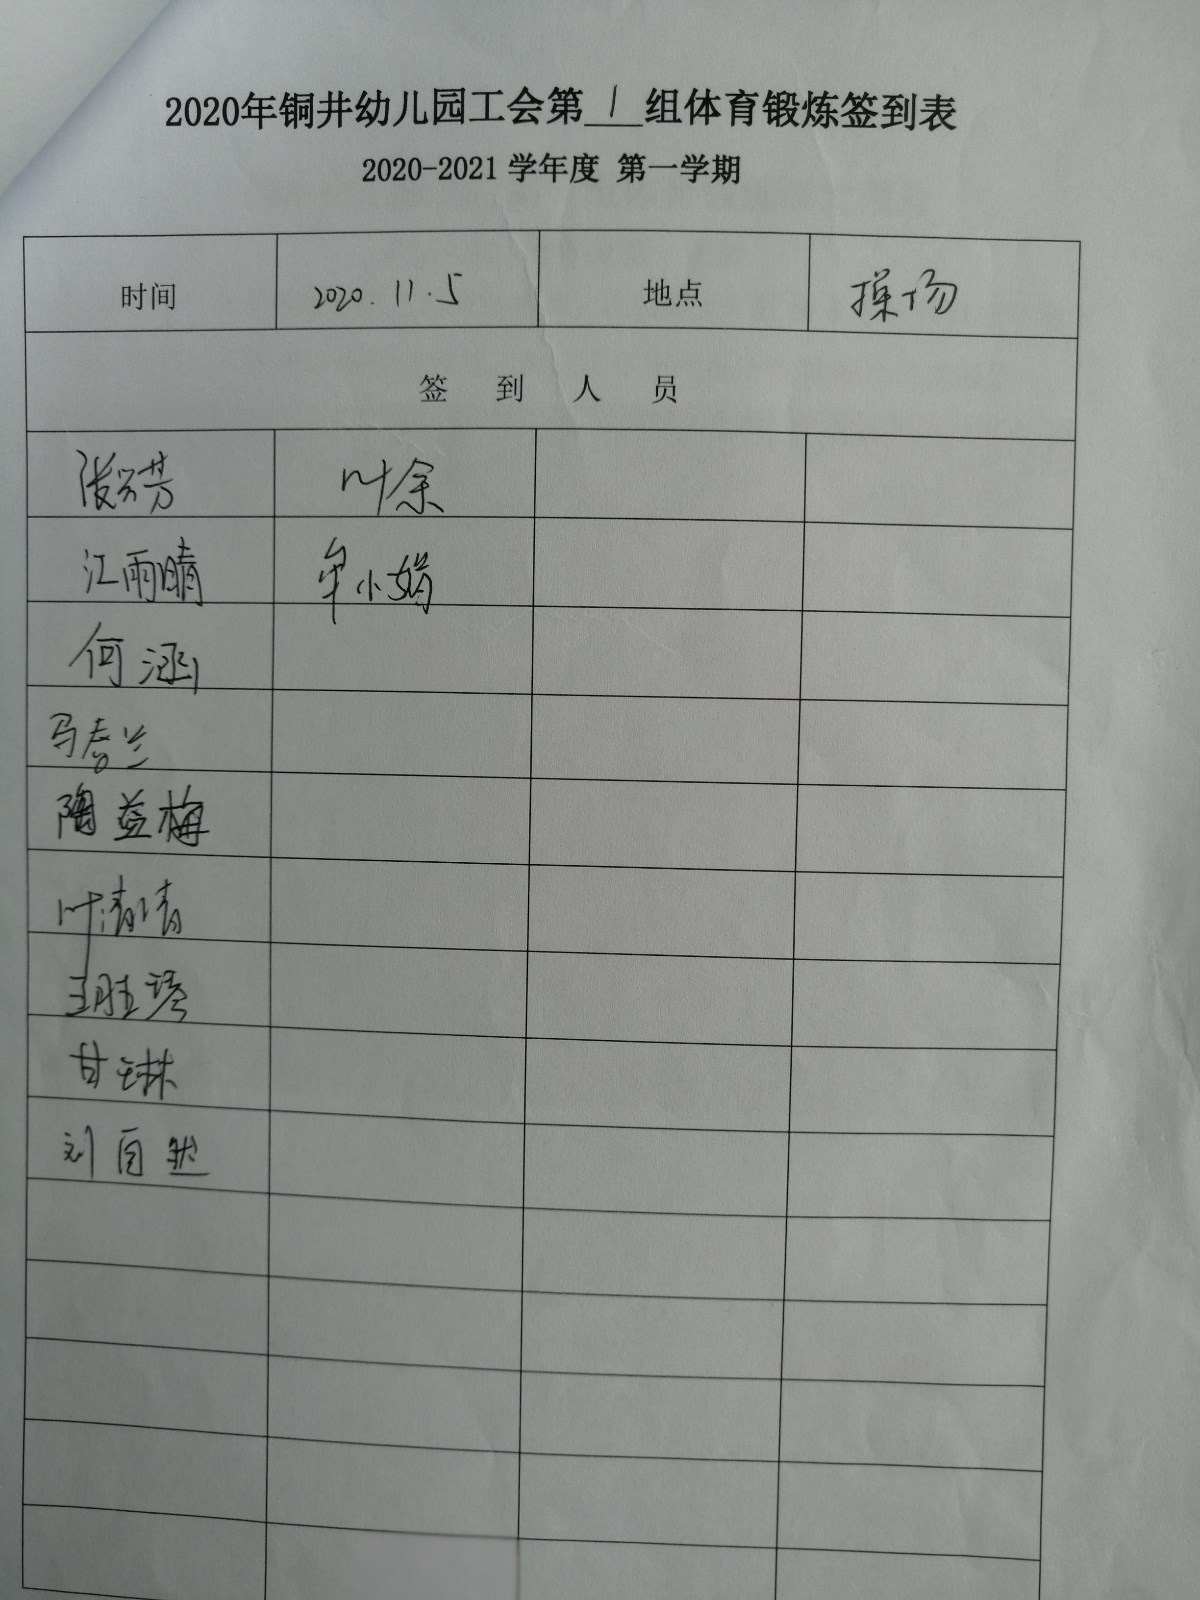 2020年铜井幼儿园工会第 1 组体育锻炼签到表
2020-2021 学年度 第一学期
时间 2020.11.5 地点 操场
签 到 人 员
张兴芳 叶余
江雨晴 牟小娟
何涵
马春兰
陶益梅
叶清清
王胜琴
甘玉林
刘自然